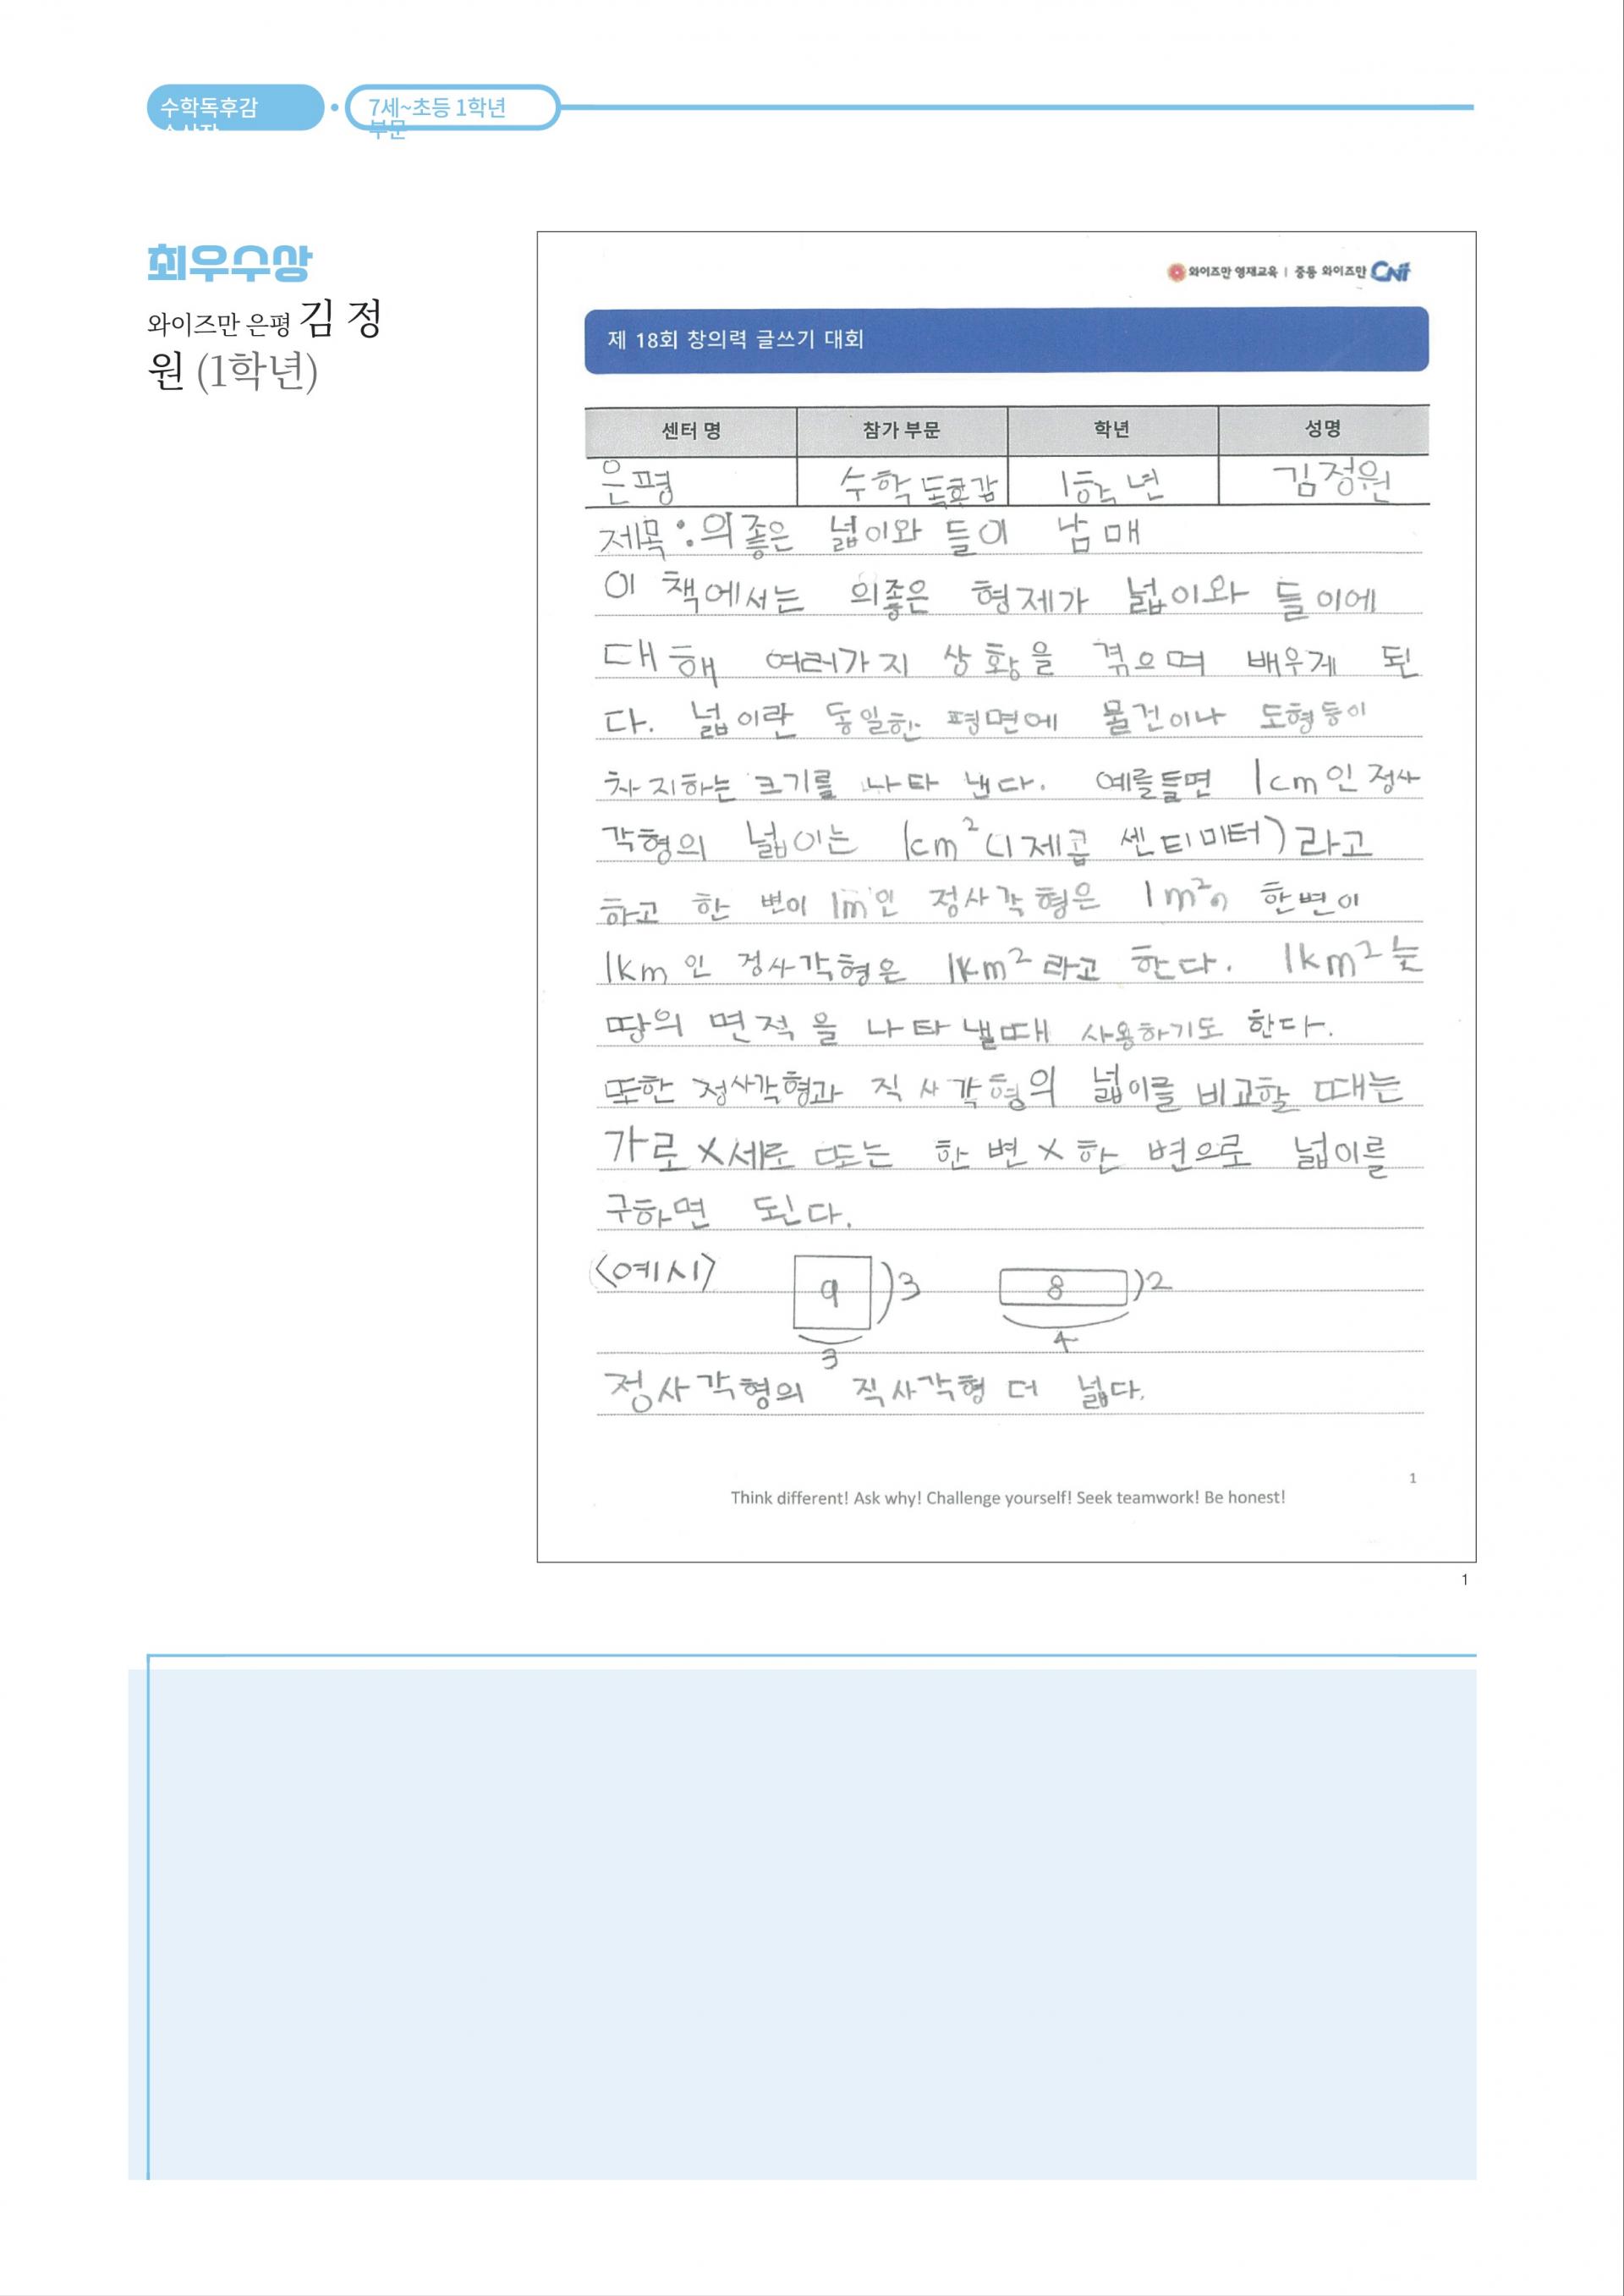 수학독후감
7세~초등 1학년
부문
최우수상
와이즈만 은평 김 정
원 (1학년)
와이즈만 영재교육 | 중등 와이즈만 CNI
제 18회 창의력 글쓰기 대회
센터 명 참가 부문 학년 성명
은평 수학 독후감 1학년 김정원
제목 : 의좋은 넓이와 들이 남매
이 책에서는 의좋은 형제가 넓이와 들이에
대해 여러가지 상황을 겪으며 배우게 된
다. 넓이란 동일한 평면에 물건이나 도형등이
차지하는 크기를 나타 낸다. 예를들면 1cm인 정사
각형의 넓이는 1cm² (1제곱 센티미터) 라고
하고 한 변이 1m인 정사각형은 1m², 한변이
1km인 정사각형은 1km² 라고 한다. 1km²는
땅의 면적을 나타 낼때 사용하기도 한다.
또한 정사각형과 직사각형의 넓이를 비교할 때는
가로×세로 또는 한 변×한 변으로 넓이를
구하면 된다.
<예시> 9 3 8 2
3 4
정사각형의 직사각형 더 넓다.
1
Think different! Ask why! Challenge yourself! Seek teamwork! Be honest!
1